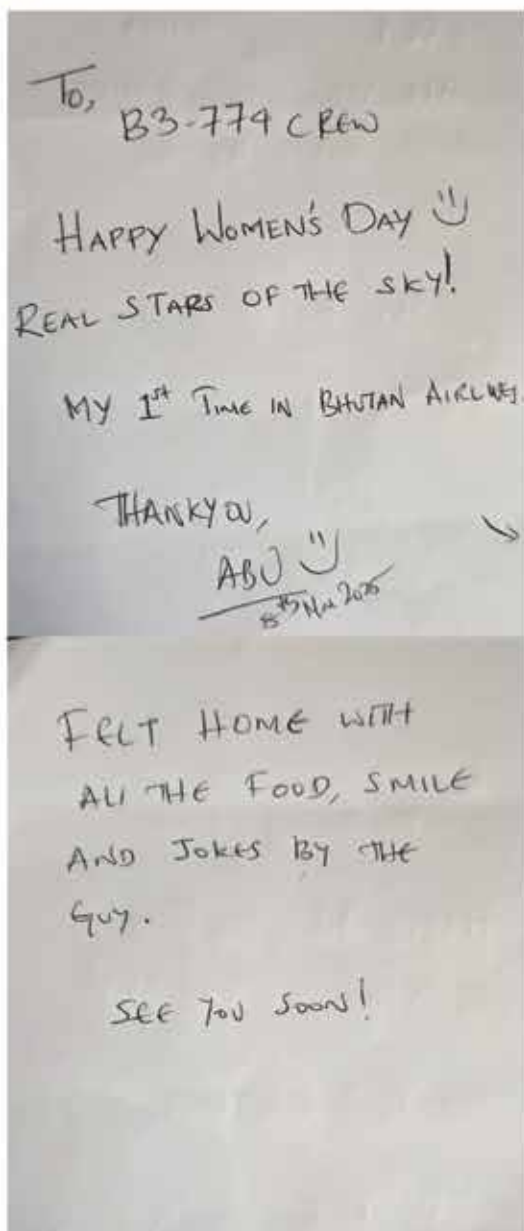 To,
B3-774 CREW
HAPPY WOMEN'S DAY
REAL STARS OF THE SKY!
MY 1st TIME IN BHUTAN AIRLINES.
THANKYOU,
ABU
8th Mar 2025
FELT HOME WITH
ALL THE FOOD, SMILE
AND JOKES BY THE
GUY.
SEE YOU SOON!